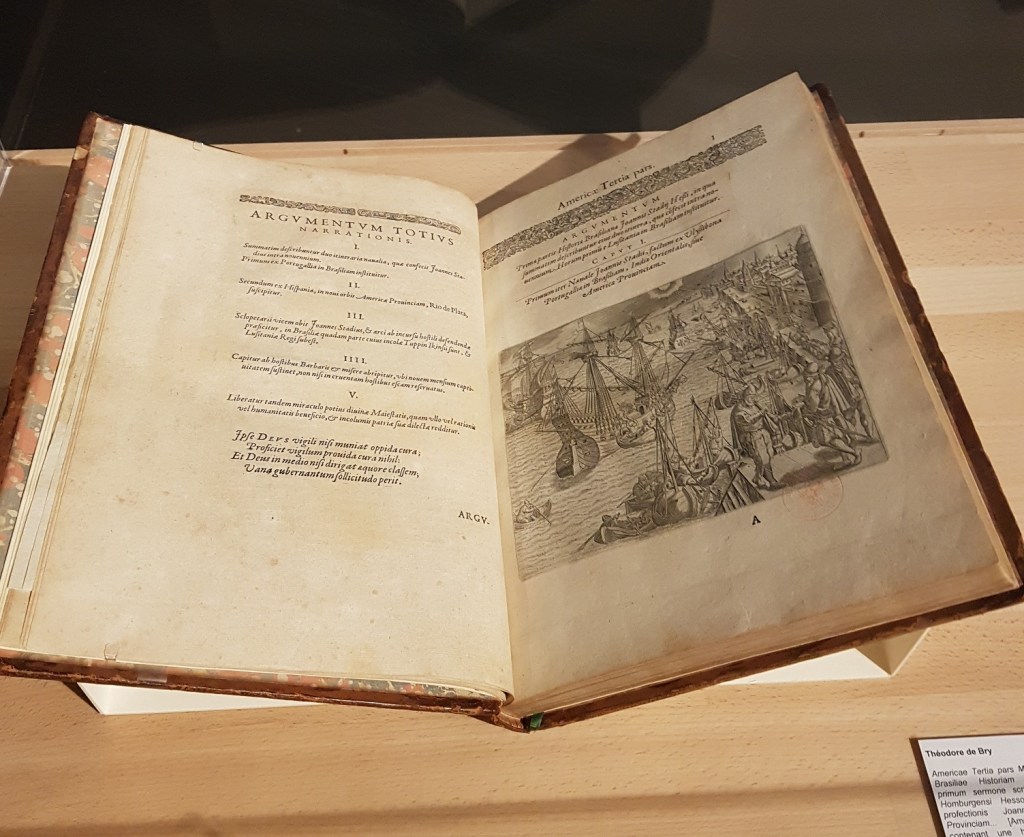 ARGVMENTVM TOTIVS
NARRATIONIS.
I.
Summatim describuntur duo itineraria naualia, quæ confecit Joannes Sta-
dius intra nouennium.
Primum ex Portogallia in Brasiliam instituitur.
II.
Secundum ex Hispania, in noui orbis Americæ Prouinciam, Rio de Plata,
suscipitur.
III.
Sclopetarii vicem obit Joannes Stadius, & arci ab incursu hostili defendendæ
præficitur, in Brasiliæ quadam parte cuius incolæ Tuppin Ikinsii sunt, &
Lusitaniæ Regi subest.
IIII.
Capitur ab hostibus Barbaris & misere abripitur, vbi nouem mensium capti-
uitatem sustinet, non nisi in cruentam hostibus escam reseruatus.
V.
Liberatur tandem miraculo potius diuinæ Maiestatis, quam vllo vel rationis
vel humanitatis beneficio, & incolumis patriæ suæ dilectæ redditur.
Ipse DEVS vigili nisi muniat oppida cura;
Proficiet vigilum prouida cura nihil:
Et Deus in medio nisi dirigat æquore classem,
Vana gubernantum sollicitudo perit.
ARGV.
1
Americæ Tertia pars.
ARGVMENTVM
Prima parte Historiæ Brasilianæ Joannis Stadij Hessi, in qua
summatim describuntur eius duo itinera, quæ confecit intra no-
uennium. Horum primum è Lusitania in Brasiliam instituitur.
CAPVT I.
Primum iter Nauale Joannis Stadii, factum ex Vlyssbona
Portogalliæ in Brasiliam, Indiæ Orientalissimæ
Americæ Prouinciam.
A
Théodore de Bry
Americae Tertia pars M
Brasiliae Historiam
primum sermone scr
Homburgensi Hesso
profectionis Joann
Provinciam... [Am
contenant une